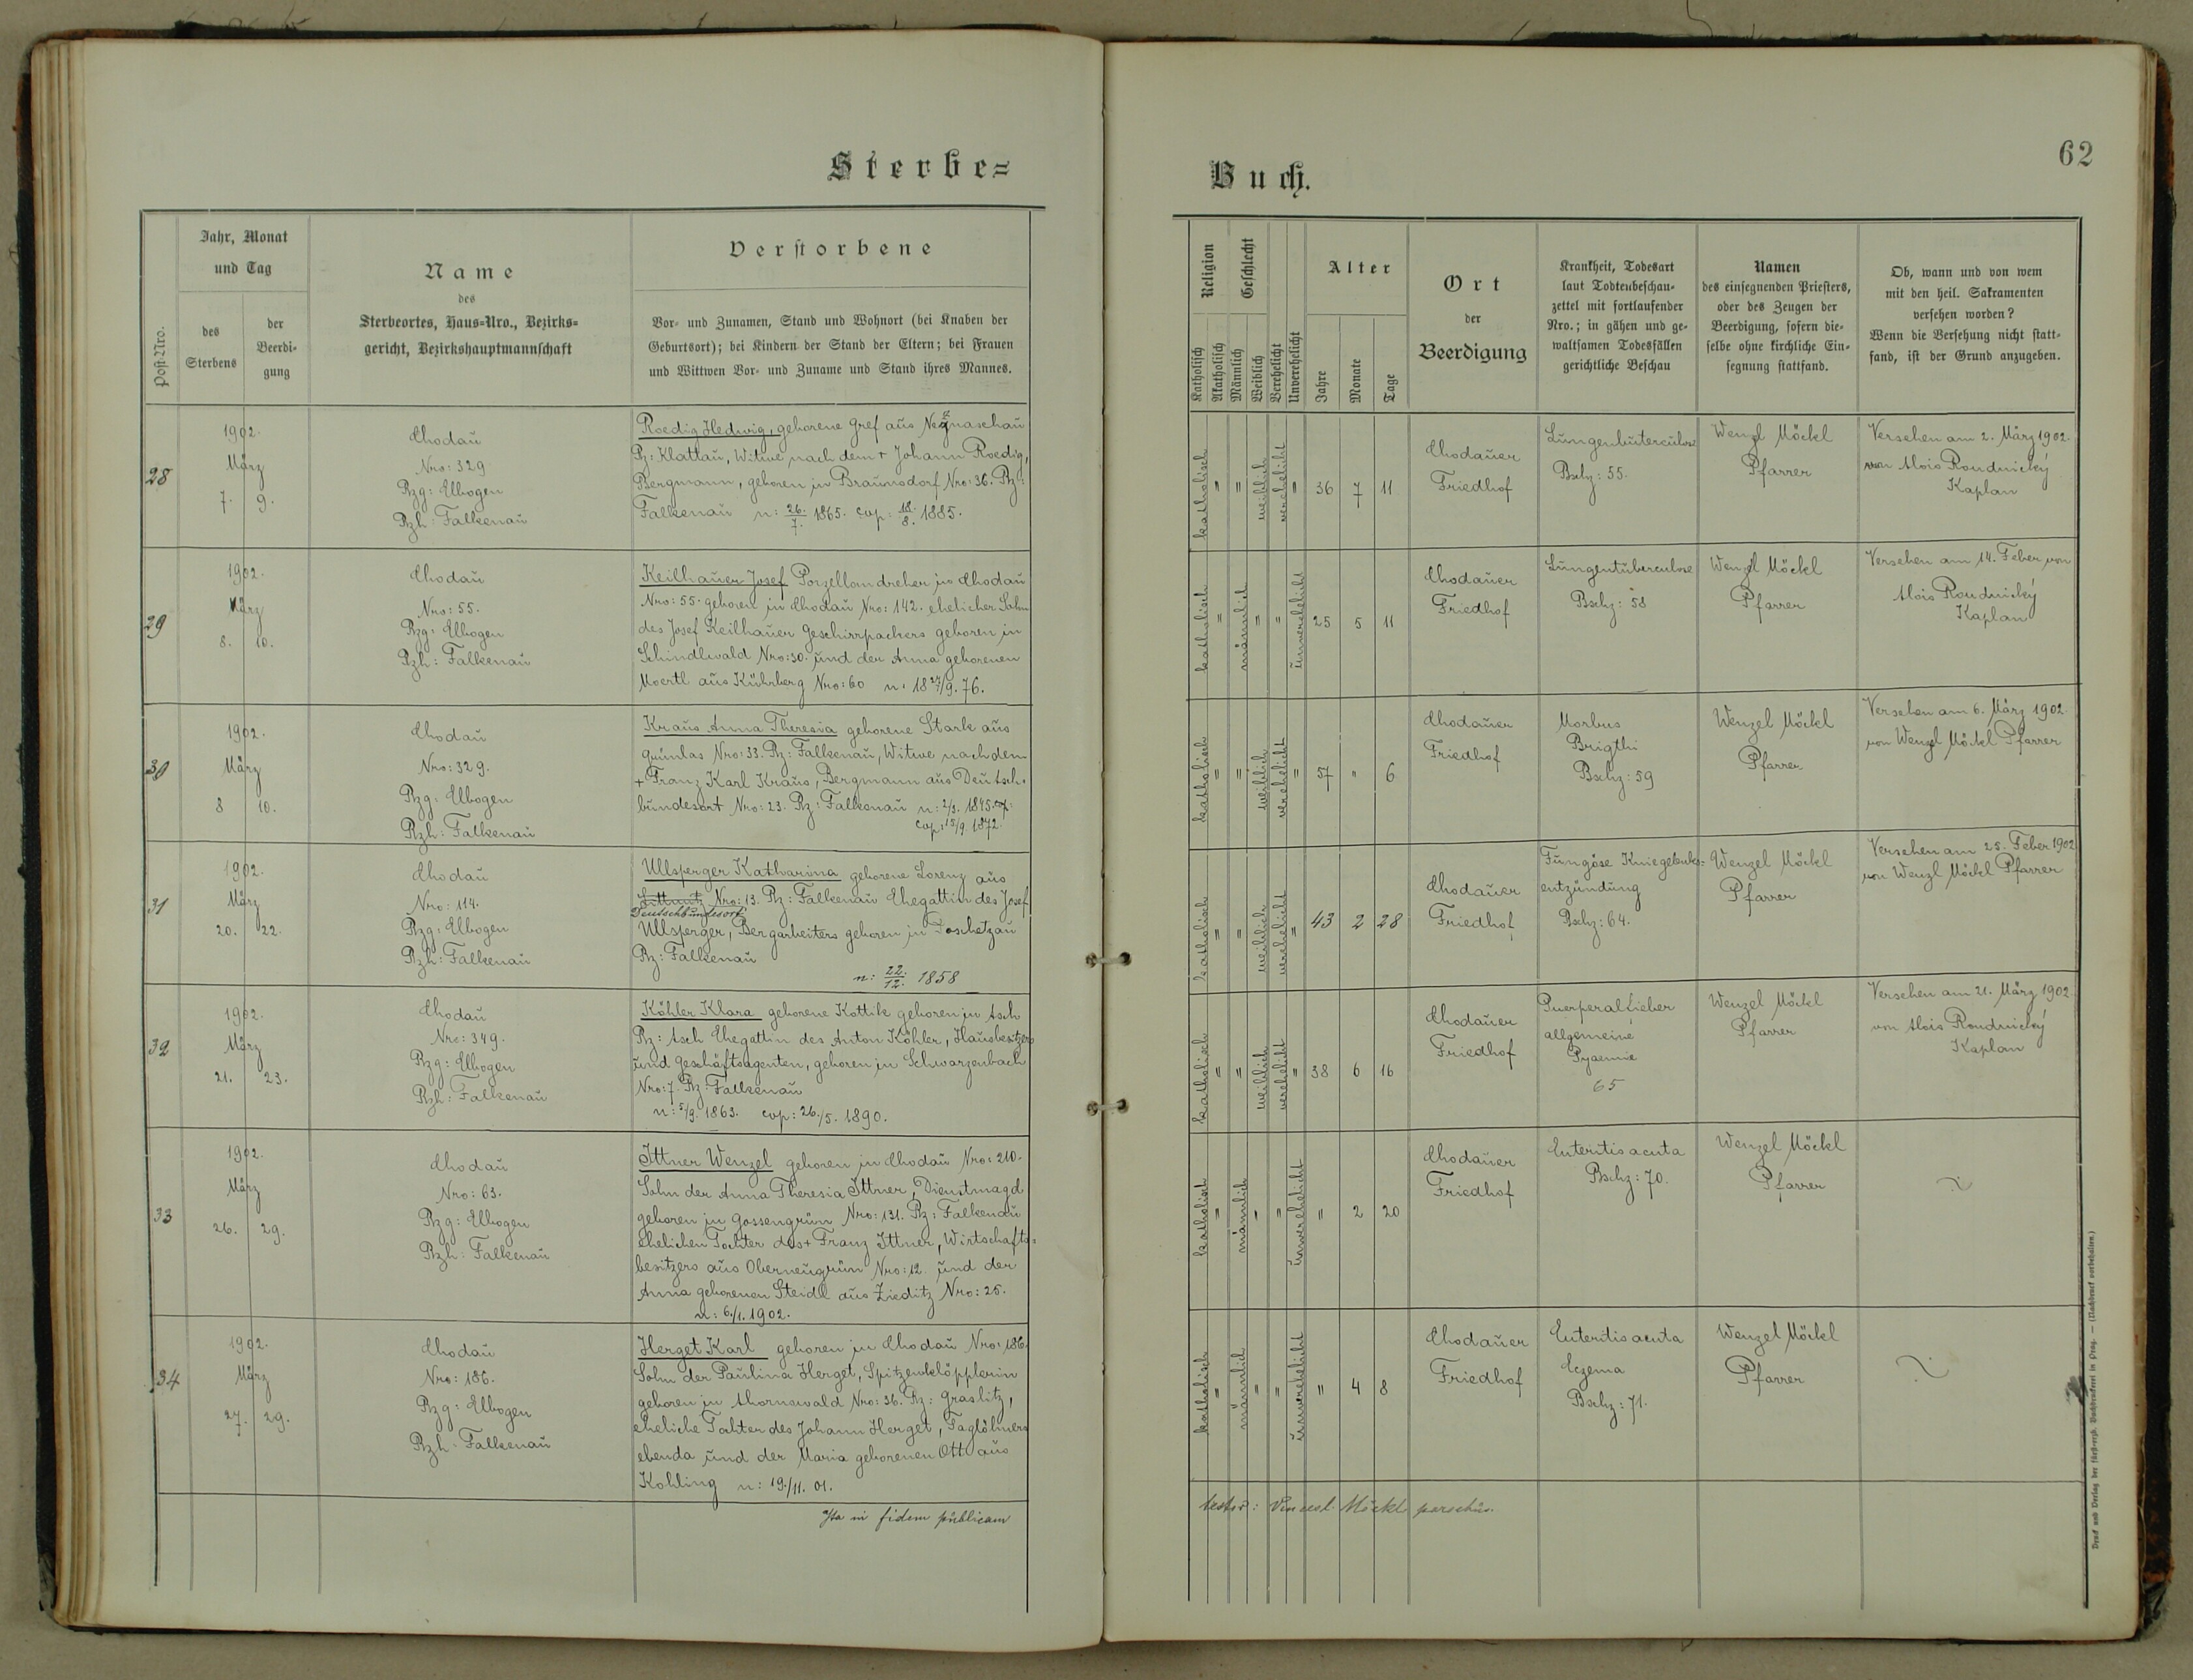 Sterbe=
Buch.
62
Post-Nro.
Jahr, Monat
und Tag
des
Sterbens
der
Beerdi-
gung
Name
des
Sterbeortes, Haus-Nro., Bezirks-
gericht, Bezirkshauptmannschaft
Verstorbene
Vor- und Zunamen, Stand und Wohnort (bei Knaben der
Geburtsort); bei Kindern der Stand der Eltern; bei Frauen
und Wittwen Vor- und Zuname und Stand ihres Mannes.
Religion
Katholisch
Akatholisch
Geschlecht
Männlich
Weiblich
Verehelicht
Unverehelicht
Alter
Jahre
Monate
Tage
Ort
der
Beerdigung
Krankheit, Todesart
laut Todtenbeschau-
zettel mit fortlaufender
Nro.; in gähen und ge-
waltsamen Todesfällen
gerichtliche Beschau
Namen
des einsegnenden Priesters,
oder des Zeugen der
Beerdigung, sofern die-
selbe ohne kirchliche Ein-
segnung stattfand.
Ob, wann und von wem
mit den heil. Sakramenten
versehen worden?
Wenn die Versehung nicht statt-
fand, ist der Grund anzugeben.
28
1902.
März
7. 9.
Chodau
Nro: 329
Bzg: Elbogen
Bzh: Falkenau
Roedig Hedwig, geborene Gref aus
Bz: Klattau, Witwe nach dem + Johann Roedig,
Bergmann, geboren in Braunsdorf Nro: 36. Bz:
Falkenau n: 26./7. 1865. cop: 18./8. 1885.
katholisch " " weiblich verehelicht " 36 7 11
Chodauer
Friedhof
Lungentuberculose
Bschz: 55.
Wenzl Möckl
Pfarrer
Versehen am 2. März 1902.
von Alois Roudnický
Kaplan
29
1902.
März
8. 10.
Chodau
Nro: 55.
Bzg: Elbogen
Bzh: Falkenau
Keilhauer Josef Porzellandreher in Chodau
Nro: 55. geboren in Chodau Nro: 142. ehelicher Sohn
des Josef Keilhauer Geschirrpackers geboren in
Schindlwald Nro: 30. und der Anna geborenen
Moertl aus Kührberg Nro: 60 n: 18 27/9. 76.
katholisch " männlich " " unverehelicht 25 5 11
Chodauer
Friedhof
Lungentuberculose
Bschz: 58
Wenzl Möckl
Pfarrer
Versehen am 14. Feber von
Alois Roudnický
Kaplan
30
1902.
März
8 10.
Chodau
Nro: 329.
Bzg: Elbogen
Bzh: Falkenau
Kraus Anna Theresia geborene Stark aus
Grünlas Nro: 33. Bz: Falkenau, Witwe nach dem
+ Franz Karl Kraus, Bergmann aus Deutsch-
bundesort Nro: 23. Bz: Falkenau n: 2/3. 1845. cop:
cop: 15/9. 1872.
katholisch " " weiblich verehelicht " 57 " 6
Chodauer
Friedhof
Morbus
Brigthi
Bschz: 59
Wenzel Möckl
Pfarrer
Versehen am 6. März 1902
von Wenzl Möckl Pfarrer
31
1902.
März
20. 22.
Chodau
Nro: 114.
Bzg: Elbogen
Bzh: Falkenau
Ullsperger Katharina geborene Lorenz aus
Nro: 13. Bz: Falkenau Ehegattin des Josef
Deutschbundesort
Ullsperger, Bergarbeiters geboren in Doschetzau
Bz: Falkenau
n: 22./12. 1858
katholisch " " weiblich verehelicht " 43 2 28
Chodauer
Friedhof
Fungöse Kniegelenks-
entzündung
Bschz: 64.
Wenzel Möckl
Pfarrer
Versehen am 25. Feber 1902
von Wenzl Möckl Pfarrer
32
1902.
März
21. 23.
Chodau
Nro: 349.
Bzg: Elbogen
Bzh: Falkenau
Köhler Klara geborene Kottik geboren in Asch
Bz: Asch Ehegattin des Anton Köhler, Hausbesitzers
und Geschäftsagenten, geboren in Schwarzenbach
Nro: 7. Bz: Falkenau
n: 5/9. 1863. cop: 26./5. 1890.
katholisch " " weiblich verehelicht " 38 6 16
Chodauer
Friedhof
Puerperalfieber
allgemeine
Pyaemie
65
Wenzel Möckl
Pfarrer
Versehen am 21. März 1902
von Alois Roudnický
Kaplan
33
1902.
März
26. 29.
Chodau
Nro: 63.
Bzg: Elbogen
Bzh: Falkenau
Ittner Wenzel geboren in Chodau Nro: 210.
Sohn der Anna Theresia Ittner, Dienstmagd
geboren in Gossengrün Nro: 131. Bz: Falkenau
ehelichen Tochter des + Franz Ittner, Wirtschafts-
besitzers aus Oberneugrün Nro: 12. und der
Anna geborenen Steidl aus Zieditz Nro: 25.
n: 6./1. 1902.
katholisch " männlich " " unverehelicht " 2 20
Chodauer
Friedhof
Enteritis acuta
Bschz: 70.
Wenzel Möckl
Pfarrer
34
1902.
März
27. 29.
Chodau
Nro: 186.
Bzg: Elbogen
Bzh: Falkenau
Herget Karl geboren in Chodau Nro: 186.
Sohn der Paulina Herget, Spitzenklöpplerin
geboren in Ahornswald Nro: 36. Bz: Graslitz,
eheliche Tochter des Johann Herget, Taglöhners
ebenda und der Maria geborenen Ott aus
Kohling n: 19./11. 01.
katholisch " männlich " " unverehelicht " 4 8
Chodauer
Friedhof
Enteritis acuta
Eczema
Bschz: 71.
Wenzel Möckl
Pfarrer
Ita in fidem publicam
testor: Vencesl. Möckl parochus.
Druck und Verlag der fürst-erzb. Buchdruckerei in Prag. — (Nachdruck vorbehalten.)